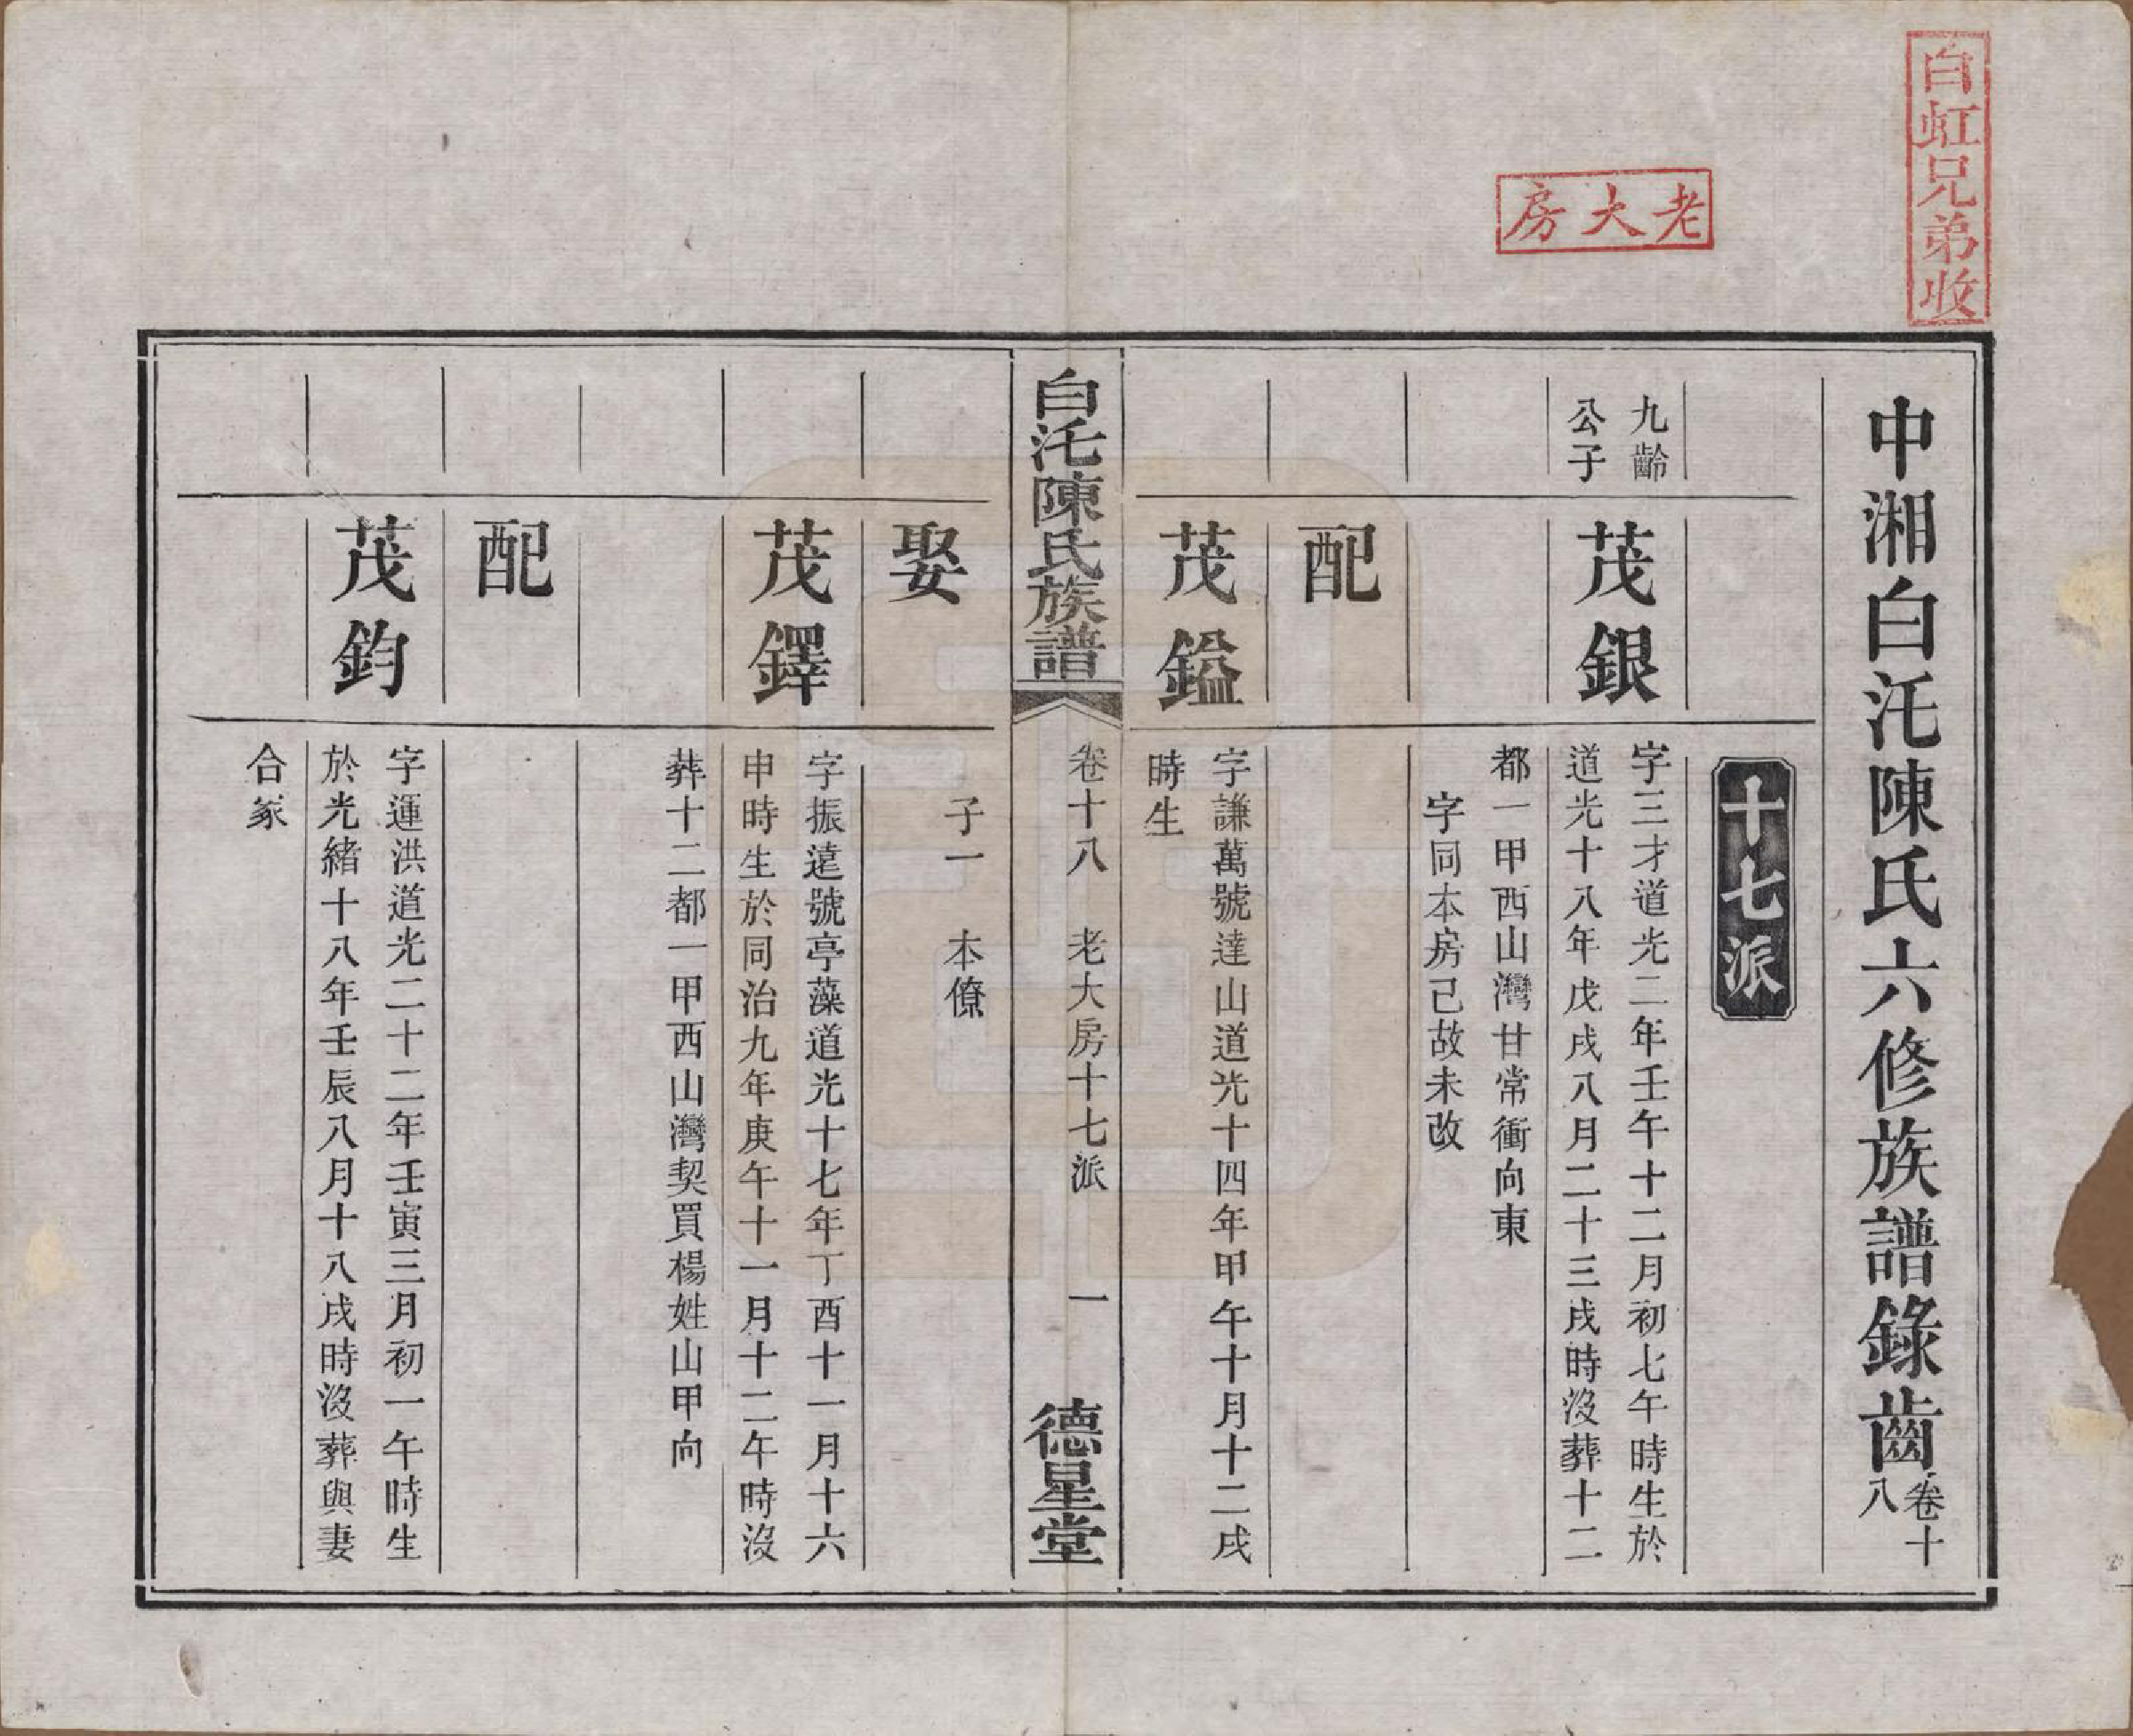 白虹兄弟收
老大房
中湘白汑陳氏六修族譜錄齒卷十八
十七派
九齡
公子
茂銀
字三才道光二年壬午十二月初七午時生於
道光十八年戊戌八月二十三戌時沒葬十二
都一甲西山灣甘常衝向東
字同本房己故未改
配
茂鎰
字謙萬號達山道光十四年甲午十月十二戌
時生
白汑陳氏族譜
卷十八 老大房十七派 一
德星堂
娶
子一 本僚
茂鐸
字振遠號亭藻道光十七年丁酉十一月十六
申時生於同治九年庚午十一月十二午時沒
葬十二都一甲西山灣契買楊姓山甲向
配
茂鈞
字運洪道光二十二年壬寅三月初一午時生
於光緒十八年壬辰八月十八戌時沒葬與妻
合冢